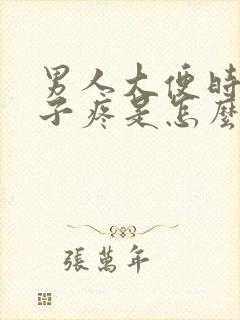 男人大便时
子疼是怎麼
張萬年